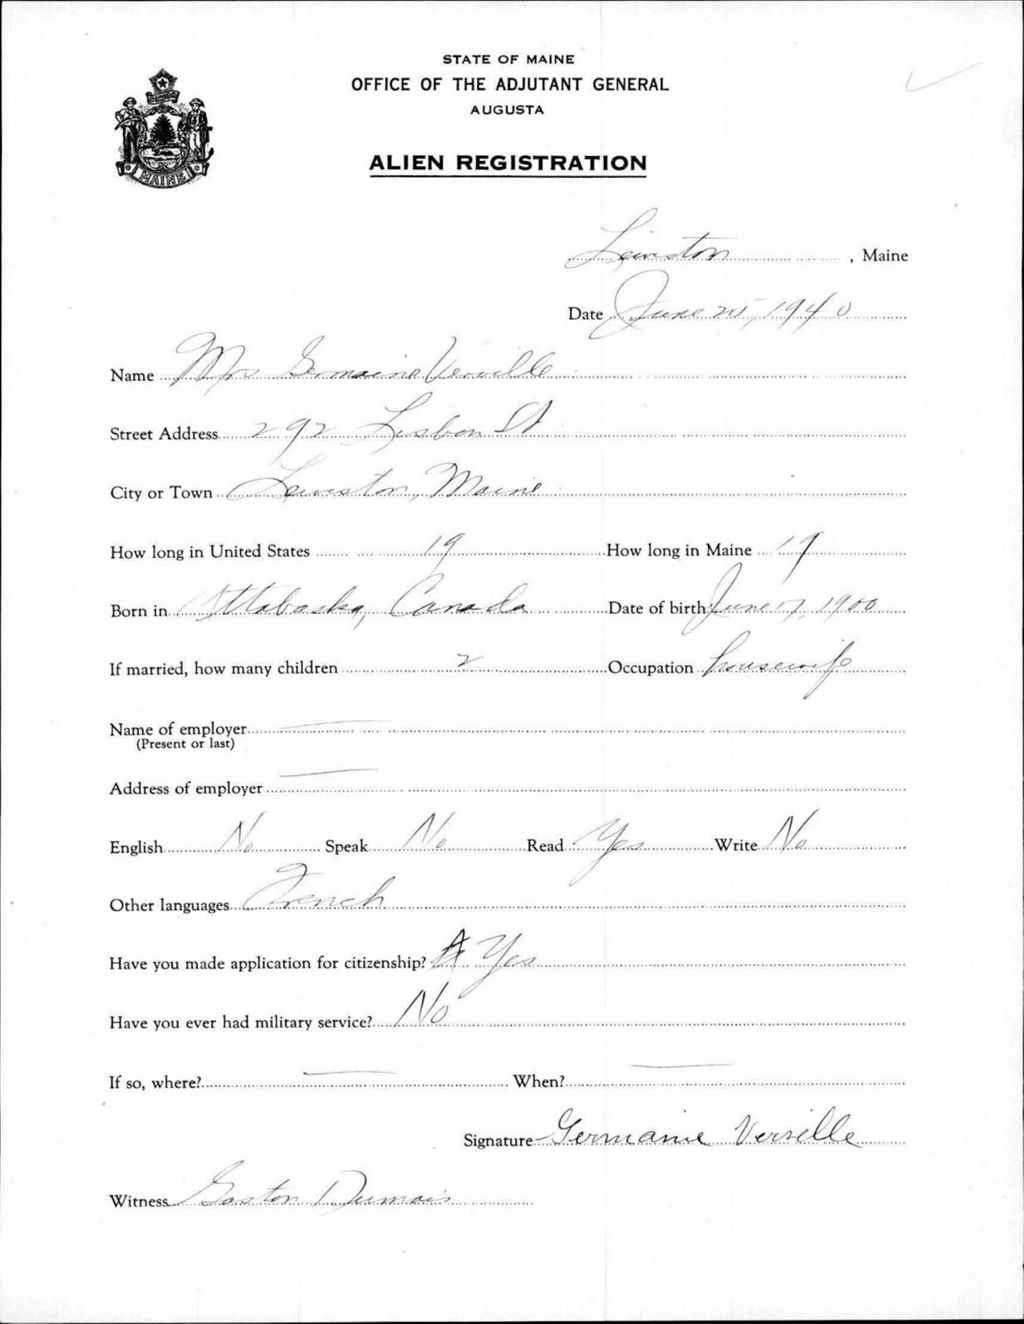 STATE OF MAINE
OFFICE OF THE ADJUTANT GENERAL
AUGUSTA
MAINE
ALIEN REGISTRATION
Lewiston, Maine
Date June 25, 1940
Name Mrs Germaine Verville
Street Address 292 Lisbon St
City or Town Lewiston, Maine
How long in United States 19 How long in Maine 19
Born in Attabaska, Canada Date of birth June 17, 1900
If married, how many children 2 Occupation housewife
Name of employer —
(Present or last)
Address of employer —
English No Speak No Read Yes Write No
Other languages French
Have you made application for citizenship? Yes
Have you ever had military service? No
If so, where? — When? —
Signature Germaine Verville
Witness Gaston Dumais